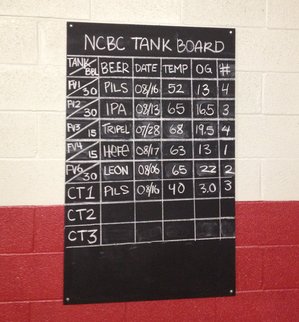 NCBC TANK BOARD
TANK/BBL BEER DATE TEMP OG #
FV1/30 PILS 08/16 52 13 4
FV2/30 IPA 08/13 65 16.5 3
FV3/15 TRIPEL 07/28 68 19.5 4
FV4/15 HEFE 08/17 63 13 1
FV6/30 LEON 08/06 65 22 2
CT1 PILS 08/16 40 3.0 3
CT2
CT3